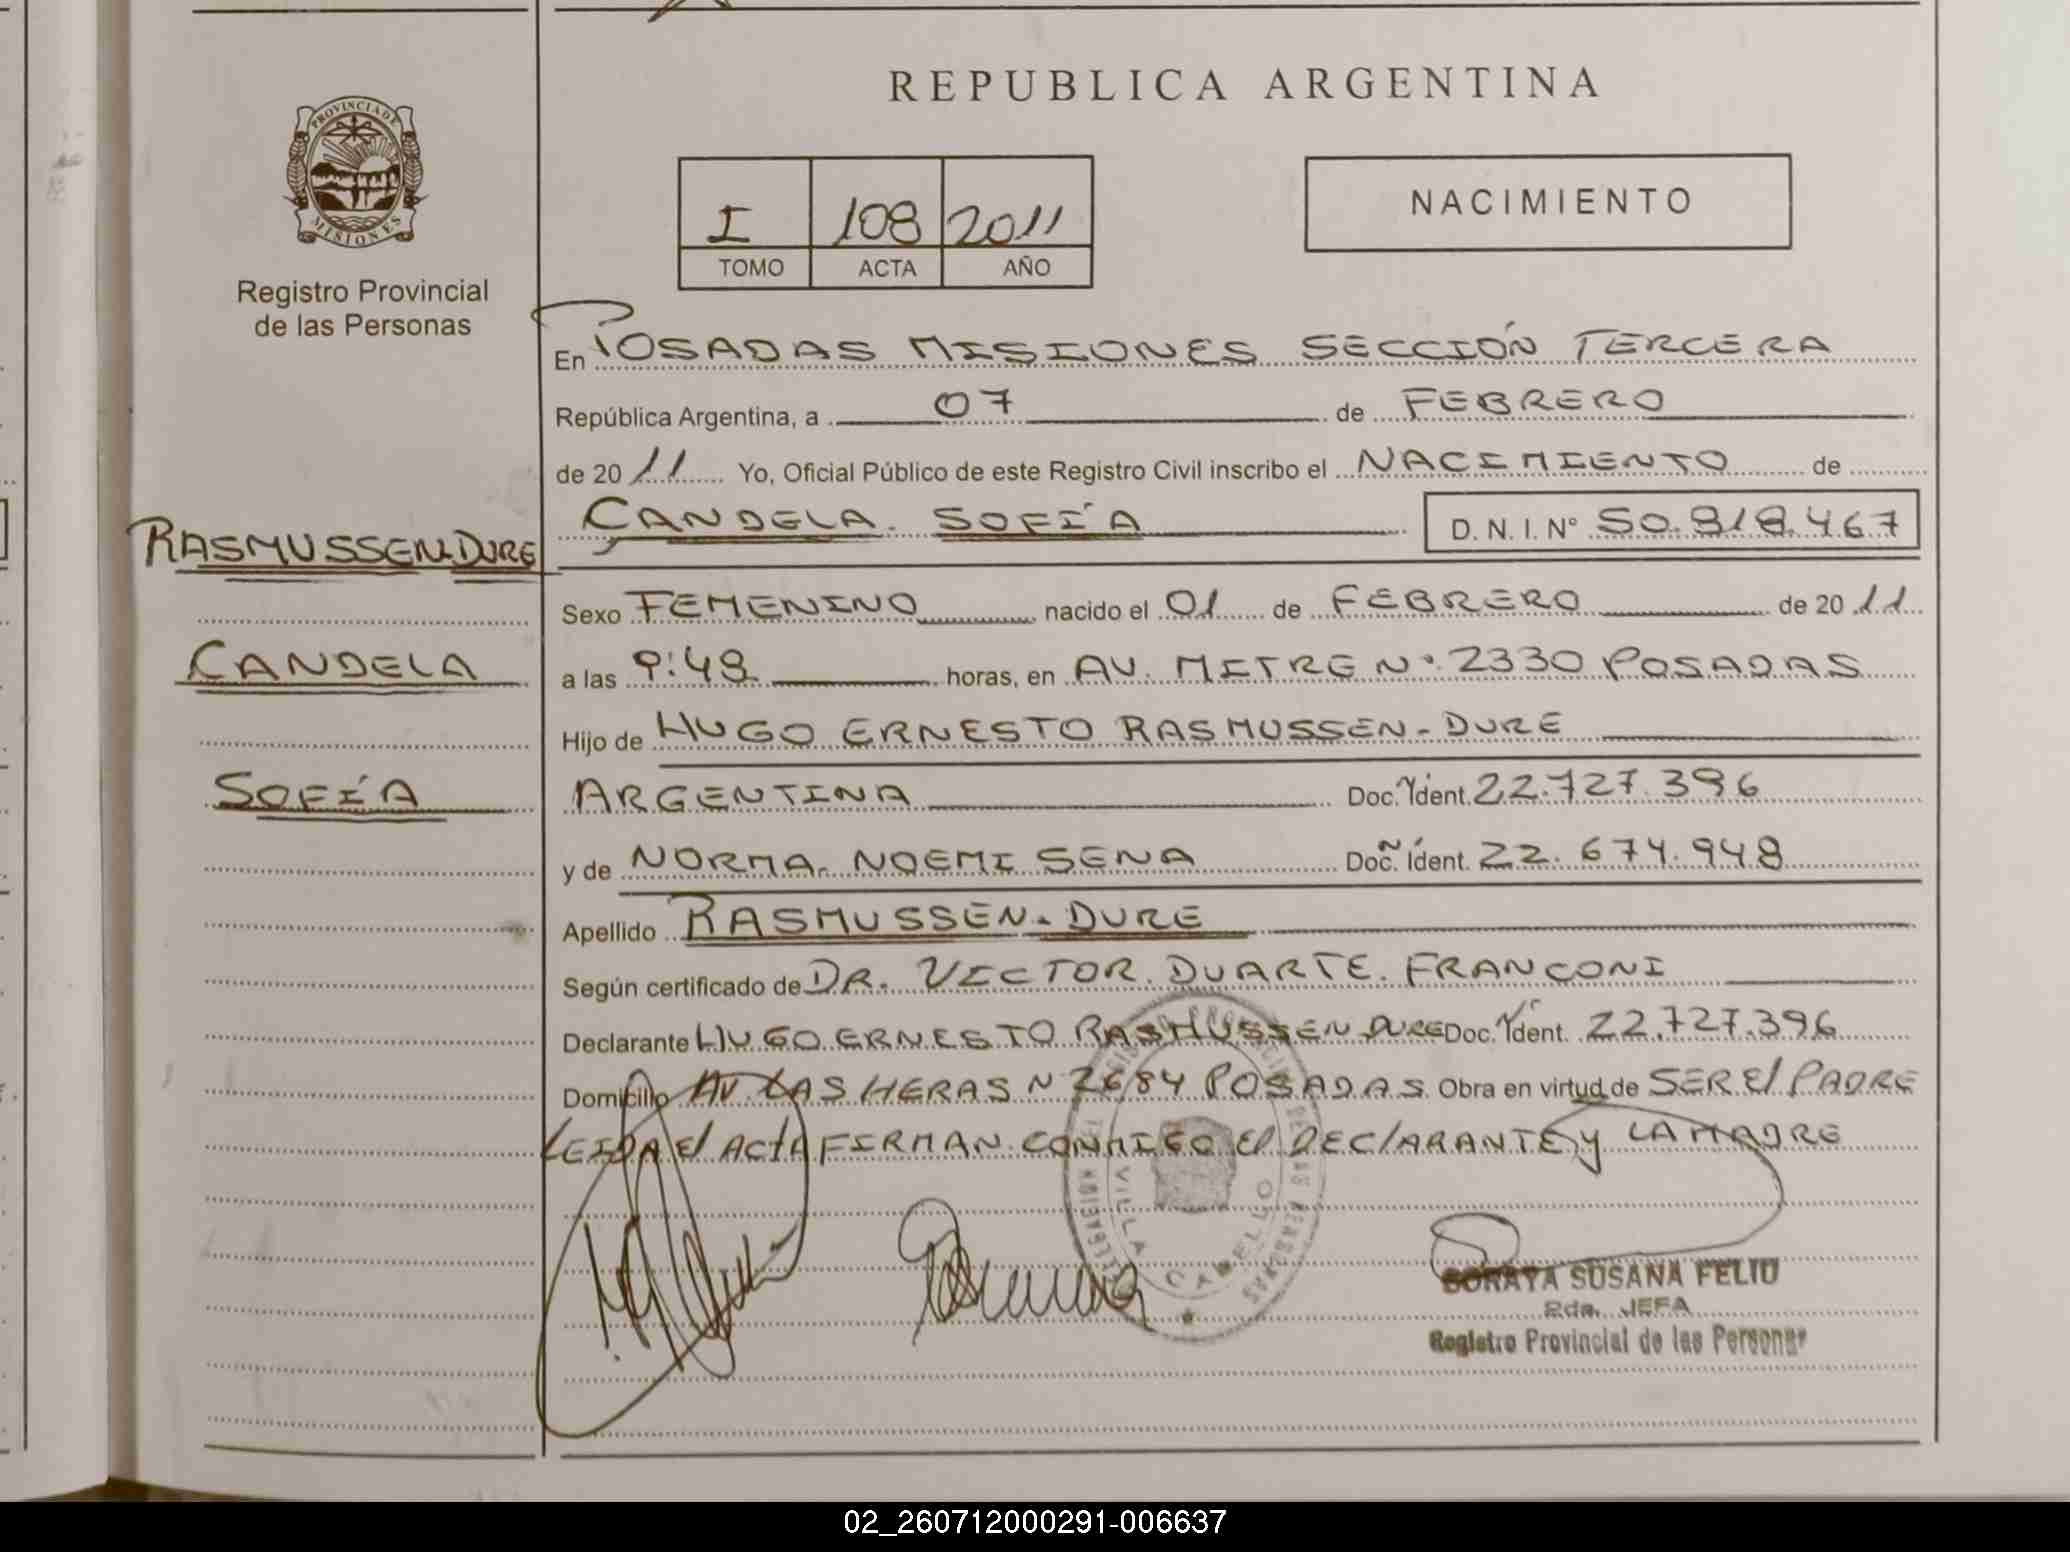 REPUBLICA ARGENTINA
PROVINCIA DE
MISIONES
Registro Provincial
de las Personas
I 108 2011
TOMO ACTA AÑO
NACIMIENTO
En POSADAS MISIONES SECCIÓN TERCERA
República Argentina, a 07 de FEBRERO
de 2011 Yo, Oficial Público de este Registro Civil inscribo el NACIMIENTO de
CANDELA SOFÍA D. N. I. Nº 50.818.467
RASMUSSEN-DURE
CANDELA
SOFÍA
Sexo FEMENINO nacido el 01 de FEBRERO de 2011
a las 9:48 horas, en AV. MITRE Nº 2330 POSADAS
Hijo de HUGO ERNESTO RASMUSSEN-DURE
ARGENTINA Doc. Ident. 22.727.396
y de NORMA NOEMI SENA Doc. Ident. 22.674.948
Apellido RASMUSSEN-DURE
Según certificado de DR. VICTOR DUARTE FRANCONI
Declarante HUGO ERNESTO RASMUSSEN DURE Doc. Ident. 22.727.396
Domicilio AV LAS HERAS N 2684 POSADAS Obra en virtud de SER El PADRE
LEIDA El ACTA FIRMAN CONMIGO El DEClARANTE y LA MADRE
VILLA CABELLO
SORAYA SUSANA FELIU
2da. JEFA
Registro Provincial de las Personas
02_260712000291-006637